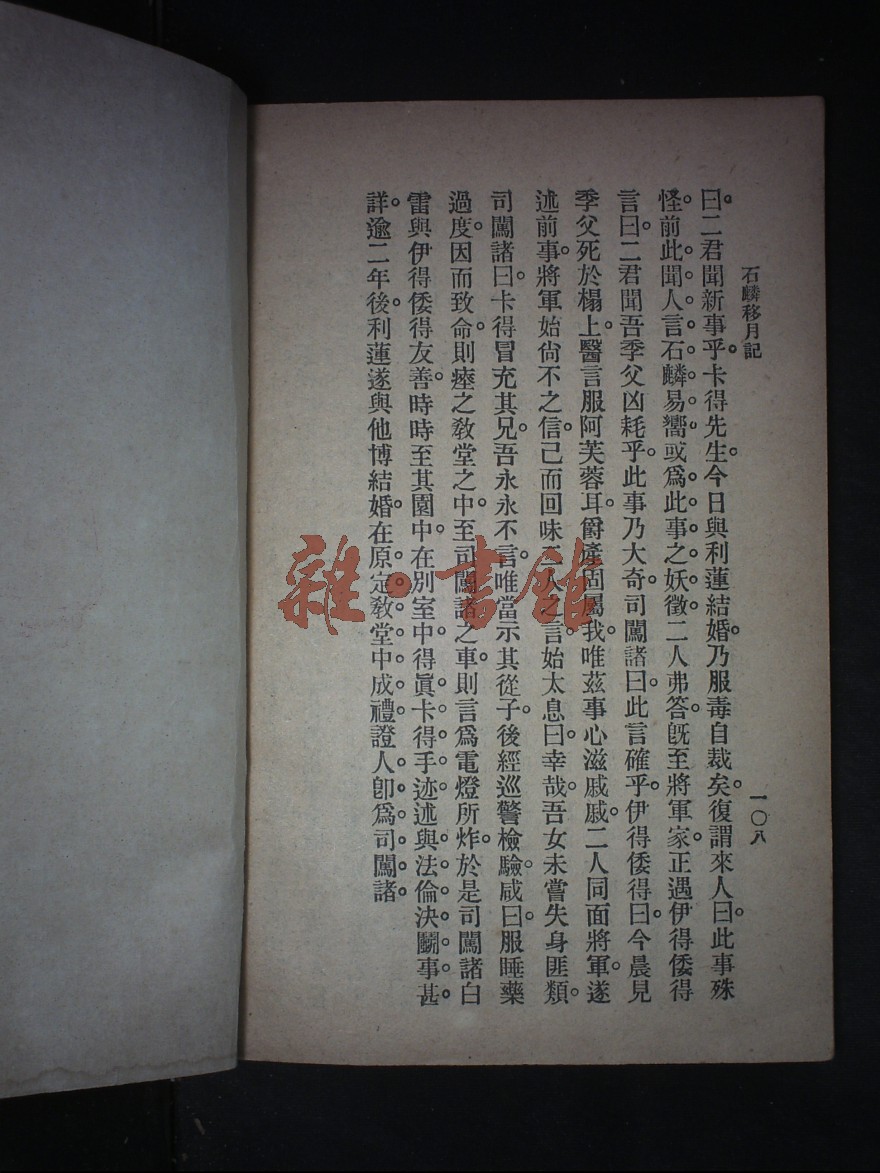 石麟移月記
一〇八
曰。二君聞新事乎。卡得先生。今日與利蓮結婚。乃服毒自裁矣。復謂來人曰。此事殊
怪。前此聞人言。石麟易嚮。或爲此事之妖徵。二人弗答。旣至將軍家。正遇伊得倭得
言曰。二君聞吾季父凶耗乎。此事乃大奇。司闖諸曰。此言確乎。伊得倭得曰。今晨見
季父死於榻上。醫言服阿芙蓉耳。爵產固屬我。唯茲事心滋戚戚。二人同面將軍。遂
述前事。將軍始尙不之信。已而回味二人之言。始太息曰。幸哉。吾女未嘗失身匪類。
司闖諸曰。卡得冒充其兄。吾永永不言。唯當示其從子。後經巡警檢驗。咸曰。服睡藥
過度。因而致命。則瘞之敎堂之中。至司闖諸之車。則言爲電燈所炸。於是司闖諸白
雷與伊得倭得友善。時時至其園中。在別室中。得眞卡得手迹。述與法倫決鬭事甚
詳。逾二年後。利蓮遂與他博結婚。在原定敎堂中成禮。證人卽爲司闖諸。
雜·書館